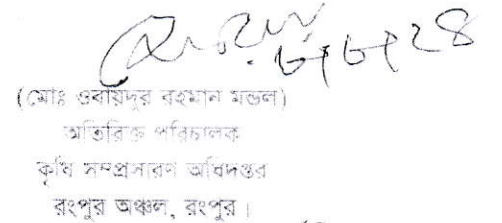 ৮/৮/২৪
(মোঃ ওবায়দুর রহমান মন্ডল)
অতিরিক্ত পরিচালক
কৃষি সম্প্রসারণ অধিদপ্তর
রংপুর অঞ্চল, রংপুর।